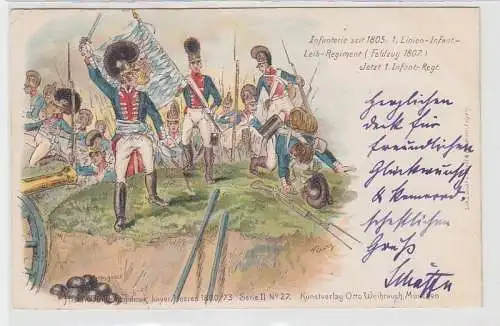 Infanterie seit 1805. 1. Linien-Infant.-
Leib-Regiment (Feldzug 1807.)
Jetzt 1. Infant.-Regt.
Herzlichen
für
freundlichen
Glückwunsch
& kamerad
schaftlichen
Gruß
bayer. Heeres 1800/73 Serie II No 27. Kunstverlag Otto Weihrauch, München